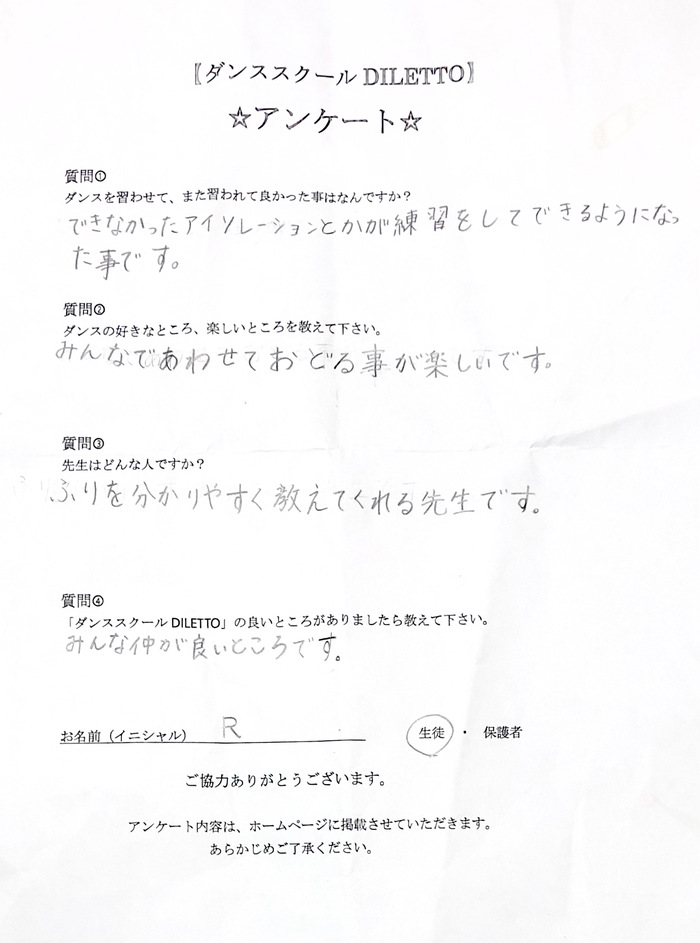 〖ダンススクール DILETTO〗
☆アンケート☆
質問①
ダンスを習わせて、また習われて良かった事はなんですか？
できなかったアイソレーションとかが練習をしてできるようになっ
た事です。
質問②
ダンスの好きなところ、楽しいところを教えて下さい。
みんなであわせておどる事が楽しいです。
質問③
先生はどんな人ですか？
ふりを分かりやすく教えてくれる先生です。
質問④
「ダンススクール DILETTO」の良いところがありましたら教えて下さい。
みんな仲が良いところです。
お名前（イニシャル） R 生徒 ・ 保護者
ご協力ありがとうございます。
アンケート内容は、ホームページに掲載させていただきます。
あらかじめご了承ください。